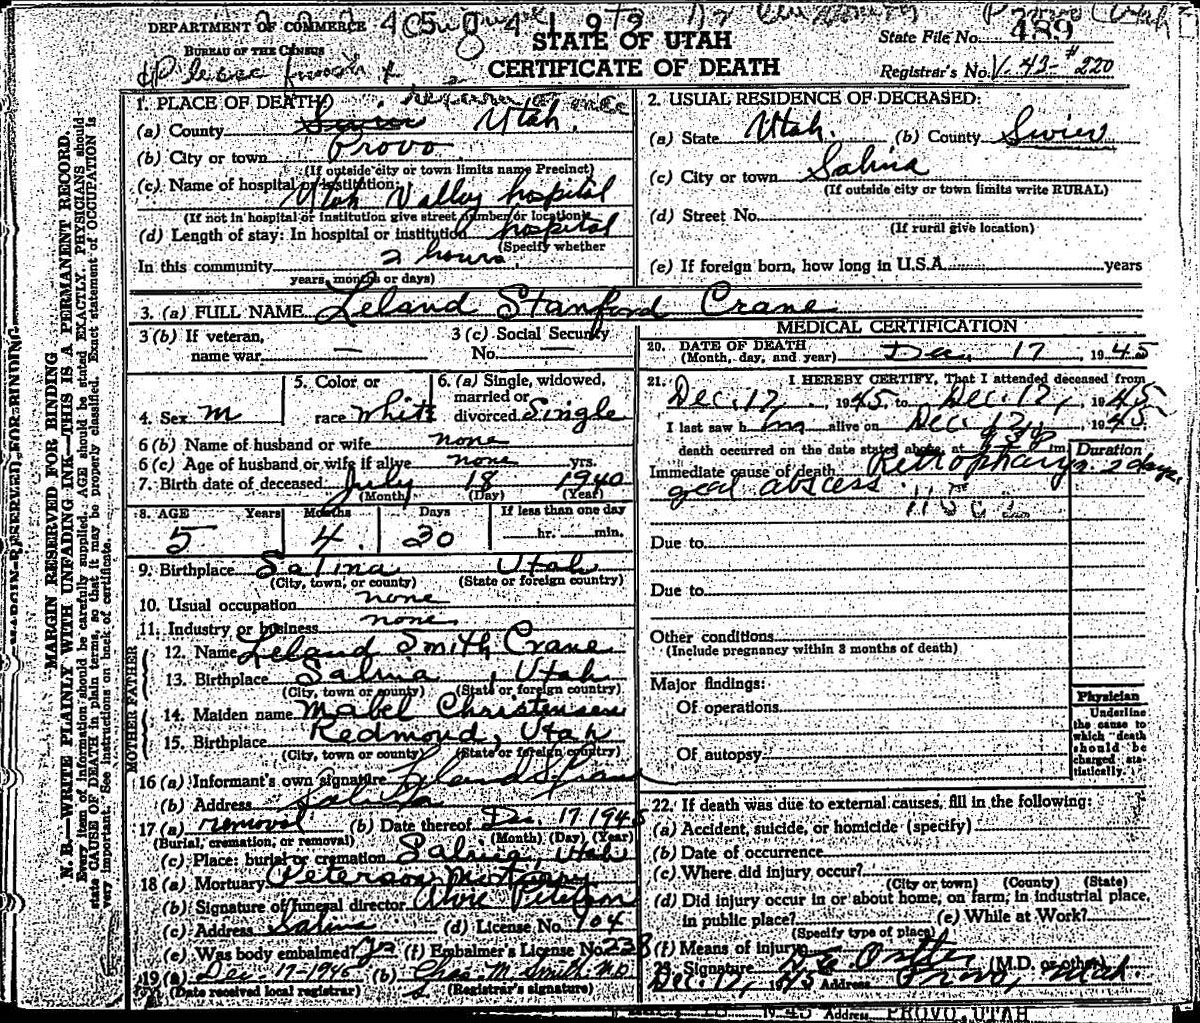 DEPARTMENT OF COMMERCE
BUREAU OF THE CENSUS
STATE OF UTAH
CERTIFICATE OF DEATH
State File No. 489
Registrar's No. V. 43- # 220
MARGIN RESERVED FOR BINDING
N. B.—WRITE PLAINLY WITH UNFADING INK—THIS IS A PERMANENT RECORD.
Every item of information should be carefully supplied. AGE should be stated EXACTLY. PHYSICIANS should
state CAUSE OF DEATH in plain terms, so that it may be properly classified. Exact statement of OCCUPATION is
very important. See instructions on back of certificate.
1. PLACE OF DEATH
(a) County Utah.
(b) City or town Provo
(If outside city or town limits name Precinct)
(c) Name of hospital or institution:
Utah Valley hospital
(If not in hospital or institution give street number or location)
(d) Length of stay: In hospital or institution hospital
(Specify whether
In this community 2 hours.
years, months or days)
2. USUAL RESIDENCE OF DECEASED:
(a) State Utah. (b) County Sevier
(c) City or town Salina
(If outside city or town limits write RURAL)
(d) Street No.
(If rural give location)
(e) If foreign born, how long in U.S.A. years
3. (a) FULL NAME Leland Stanford Crane
3 (b) If veteran, name war —
3 (c) Social Security No. —
4. Sex m
5. Color or race White
6. (a) Single, widowed, married or divorced Single
6 (b) Name of husband or wife none
6 (c) Age of husband or wife if alive none yrs.
7. Birth date of deceased July 18 1940
(Month) (Day) (Year)
8. AGE Years Months Days If less than one day
5 4 30 hr. min.
9. Birthplace Salina Utah
(City, town, or county) (State or foreign country)
10. Usual occupation none
11. Industry or business none
FATHER
12. Name Leland Smith Crane
13. Birthplace Salina, Utah
(City, town or county) (State or foreign country)
MOTHER
14. Maiden name Mabel Christensen
15. Birthplace Redmond, Utah
(City, town or county) (State or foreign country)
16 (a) Informant's own signature Leland S. Crane
(b) Address Salina
17 (a) removal (b) Date thereof Dec. 17 1945
(Burial, cremation, or removal) (Month) (Day) (Year)
(c) Place: burial or cremation Salina, Utah
18 (a) Mortuary Peterson Mortuary
(b) Signature of funeral director Alvie Peterson
(c) Address Salina (d) License No. 104
(e) Was body embalmed? Yes (f) Embalmer's License No. 238
19 (a) Dec-17-1945 (b) Chas. M. Smith M.D
(Date received local registrar) (Registrar's signature)
MEDICAL CERTIFICATION
20. DATE OF DEATH
(Month, day, and year) Dec. 17, 1945
21. I HEREBY CERTIFY, That I attended deceased from
Dec. 17, 1945, to Dec. 17, 1945
I last saw him alive on Dec. 17, 1945.
death occurred on the date stated above, at m.
Duration
Immediate cause of death Retropharyn- 2 days.
geal abscess.
Due to
Due to
Other conditions
(Include pregnancy within 3 months of death)
Major findings:
Of operations
Of autopsy
Physician
Underline
the cause to
which death
should be
charged sta-
tistically.
22. If death was due to external causes, fill in the following:
(a) Accident, suicide, or homicide (specify)
(b) Date of occurrence
(c) Where did injury occur?
(City or town) (County) (State)
(d) Did injury occur in or about home, on farm, in industrial place,
in public place? (e) While at Work?
(Specify type of place)
(f) Means of injury
23. Signature (M.D. or other)
Dec. 17, 1945 Address Provo, Utah.
Address PROVO, UTAH